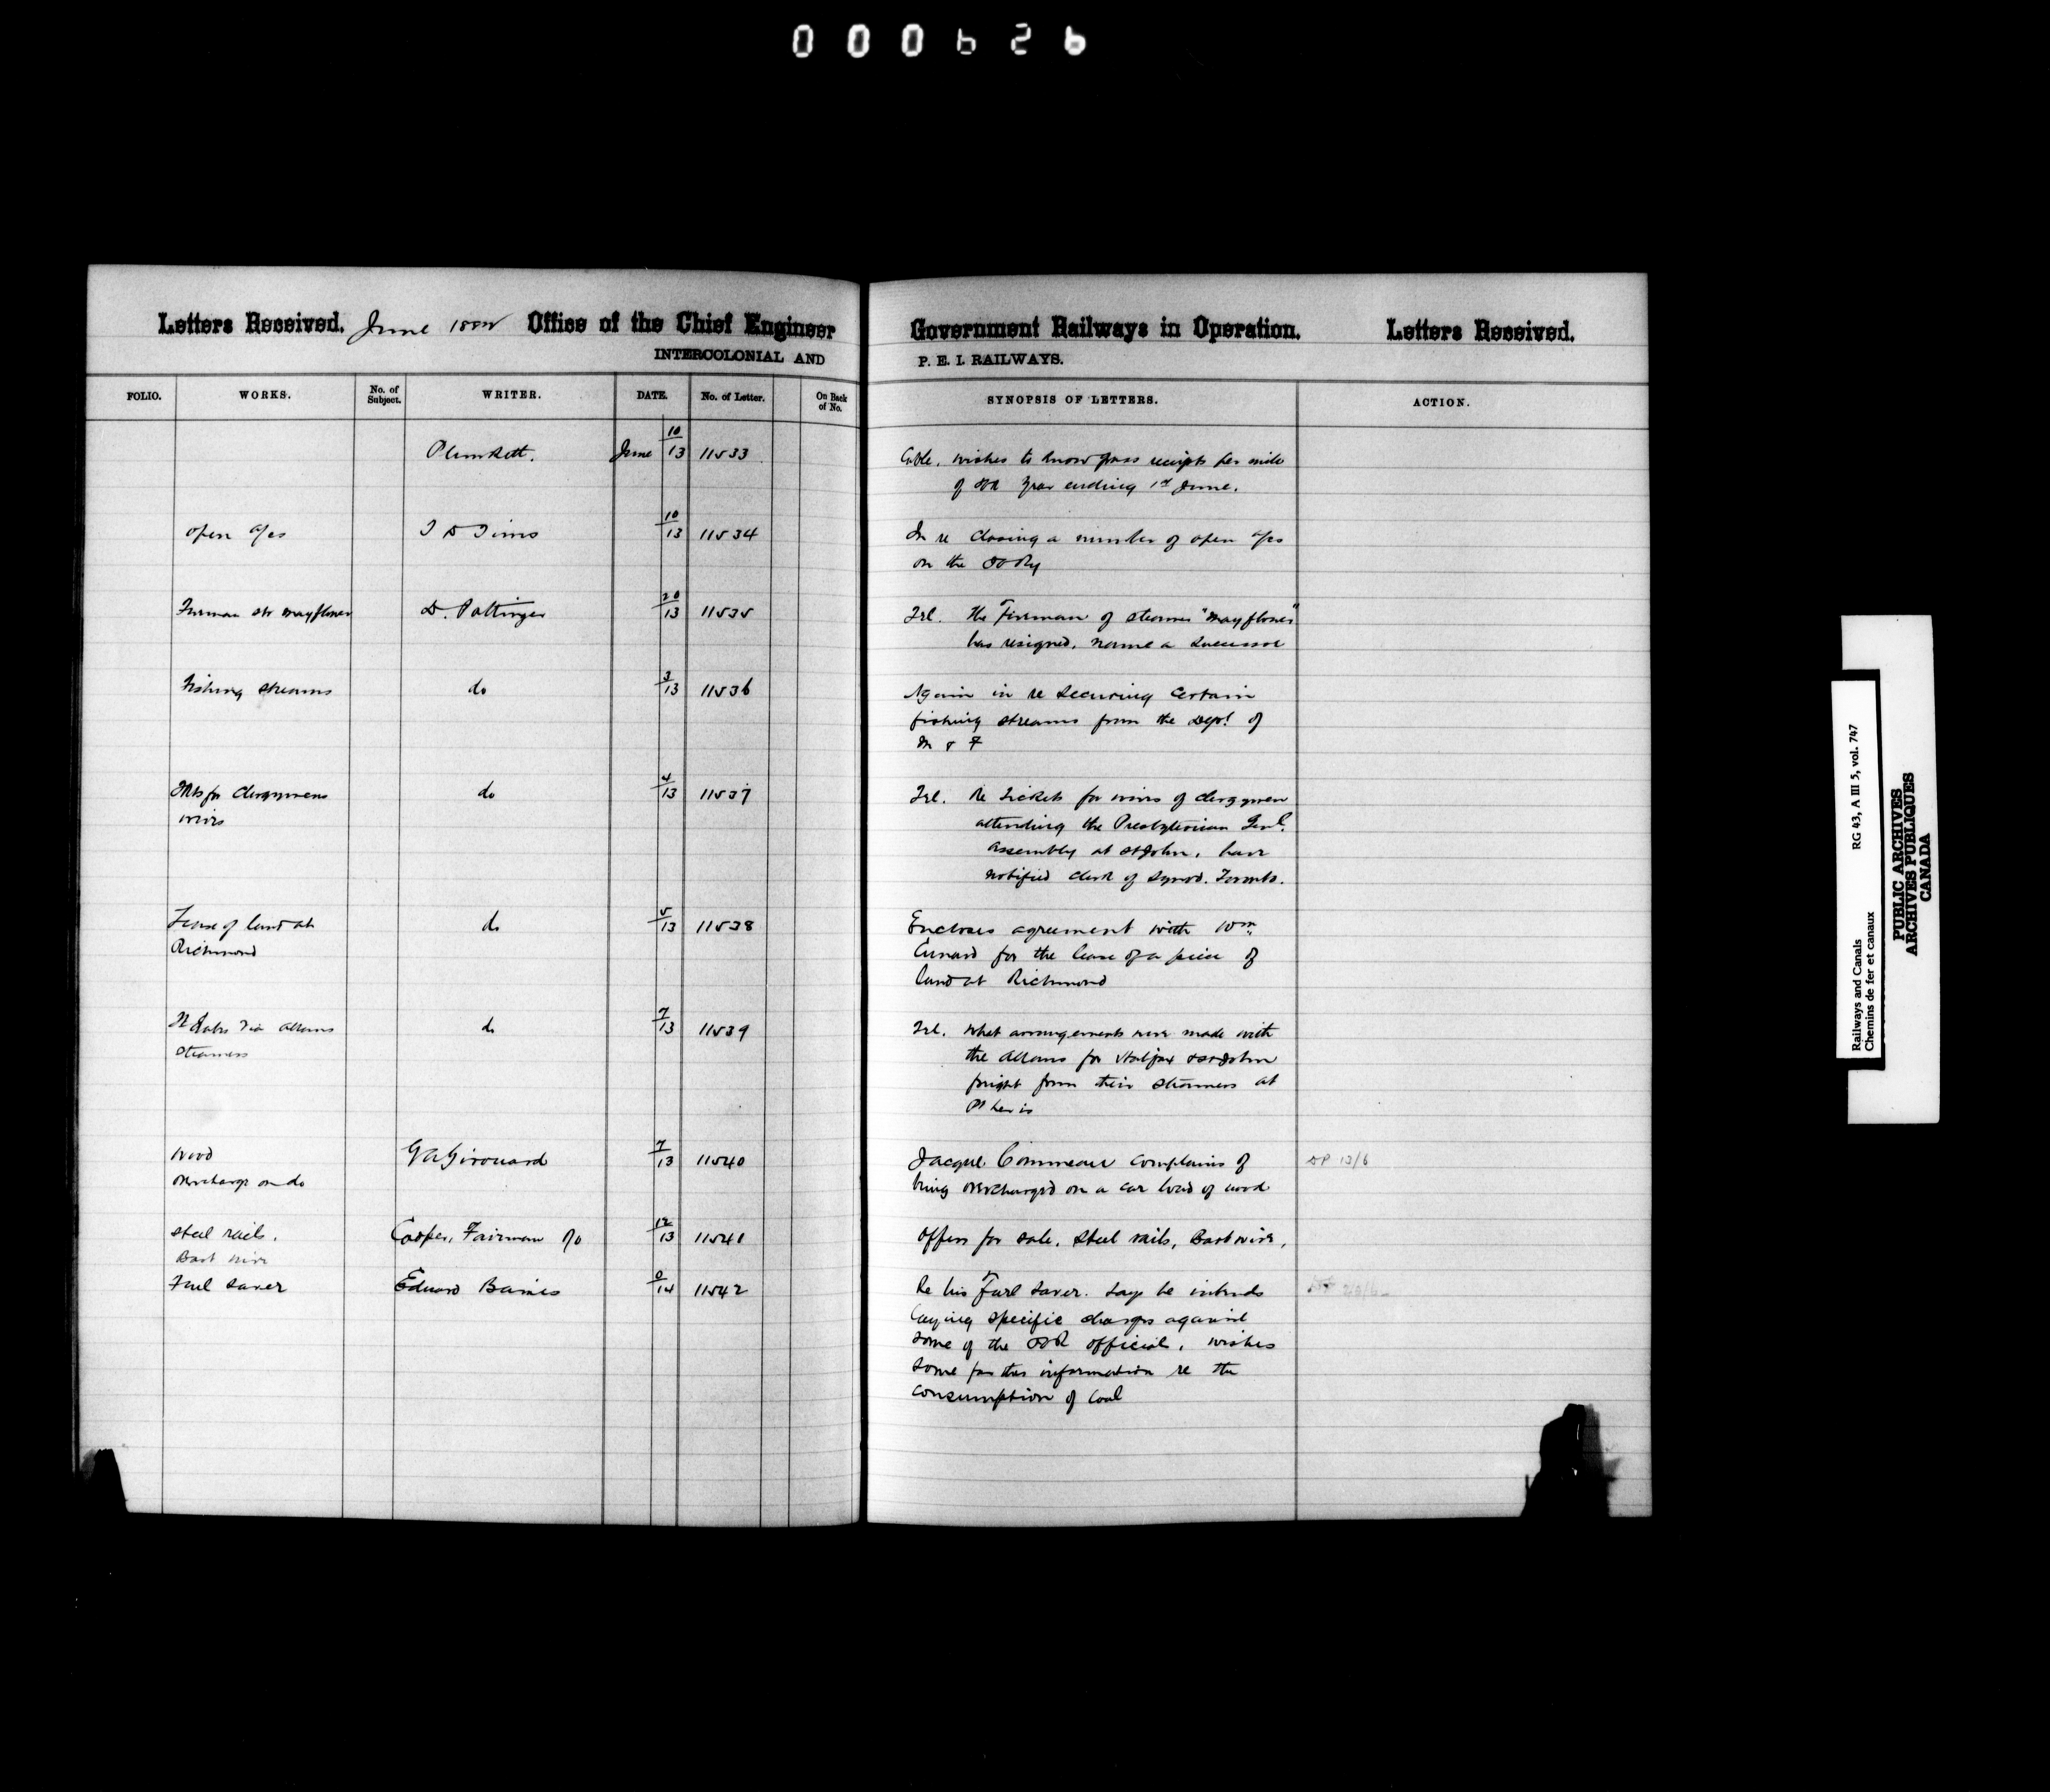 000626
Letters Received. June 188 Office of the Chief Engineer
INTERCOLONIAL AND
Government Railways in Operation. Letters Received.
P. E. I. RAILWAYS.
FOLIO. WORKS. No. of Subject. WRITER. DATE. No. of Letter. On Back of No.
SYNOPSIS OF LETTERS. ACTION.
Plunkett. June 10/13 11533
Cable, wishes to know receipts per mile
of year ending 1st June.
Open a/cs T D Tims 10/13 11534
In re closing a number of open a/cs
on the
Fireman Str Mayflower D. Pottinger 20/13 11535
Tel. The Fireman of Steamer "Mayflower"
has resigned, name a successor
Fishing streams do 3/13 11536
Again in re securing certain
fishing streams from the Dept. of
M & F
Tkts for Clergymens
wives
do 4/13 11537
Tel. Re Tickets for wives of clergymen
attending the Presbyterian Genl.
Assembly at St John, have
notified clerk of Synod. Toronto.
Lease of land at
Richmond
do 5/13 11538
Encloses agreement with Wm
Cunard for the lease of a piece of
land at Richmond
Rates via Allans
Steamers
do 7/13 11539
Tel. What arrangements were made with
the Allans for Halifax & St John
freight from their Steamers at
Pt Levis
Wood
overcharge on do
G A Girouard 7/13 11540
Jacque Commeau complains of
being overcharged on a car load of wood
DP 13/6
Steel rails,
Barb wire
Cooper, Fairman & Co 12/13 11541
Offers for sale, Steel rails, Barb wire,
Fuel Saver Edward Baines 9/14 11542
Re his Fuel Saver. Says he intends
laying specific charges against
some of the ICR officials, wishes
some further information re the
consumption of Coal
Railways and Canals RG 43, A III 5, vol. 747
Chemins de fer et canaux
PUBLIC ARCHIVES
ARCHIVES PUBLIQUES
CANADA